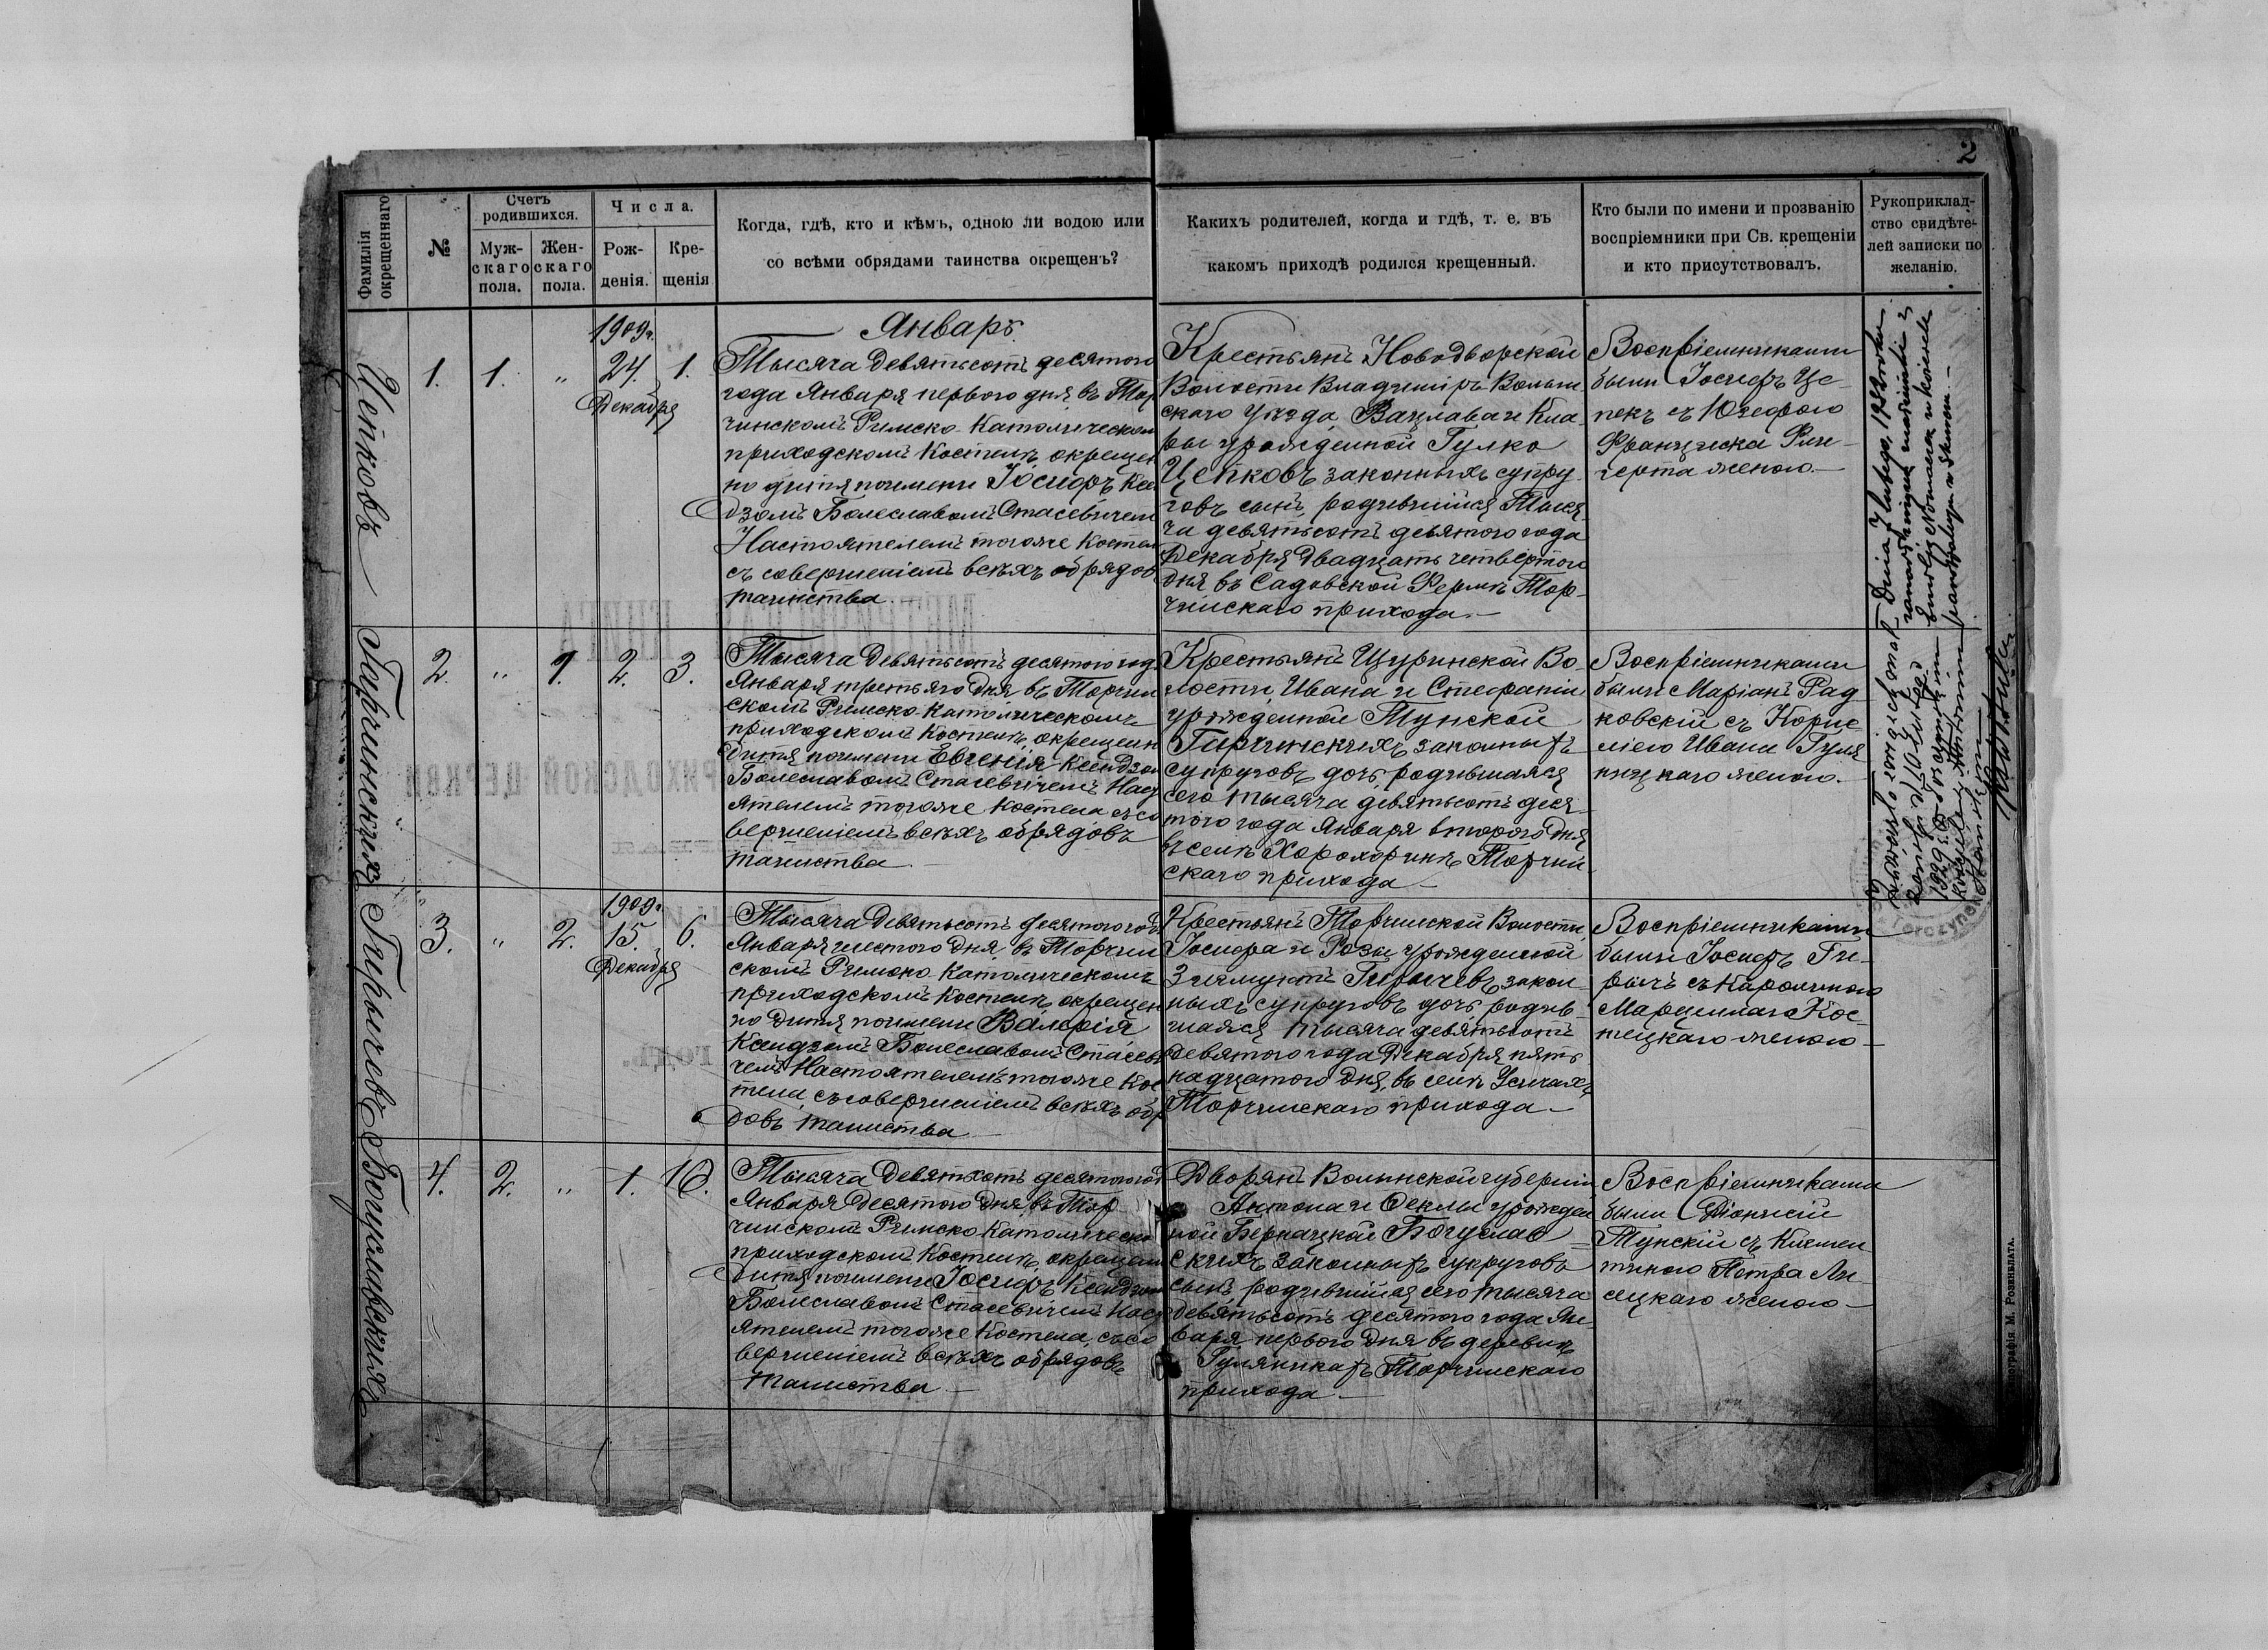 2
Фамилія окрещеннаго
№
Счетъ родившихся.
Муж-
скаго
пола.
Жен-
скаго
пола.
Числа.
Рож-
денія.
Кре-
щенія
Когда, гдѣ, кто и кѣмъ, одною ли водою или
со всѣми обрядами таинства окрещенъ?
Каких
ъ родителей, когда и гдѣ, т. е. въ
какомъ приходѣ родился крещенный.
Кто были по имени и прозванію
воспріемники при Св. крещеніи
и кто присутствовалъ.
Рукоприклад-
ство свидѣте-
лей записки по
желанію.
Январь
Цепковъ
1.
1.
"
1909г.
24.
Декабря
1.
Тысяча девятьсотъ десятого
года Января первого дня въ Тор
чинскомъ Римско-Католическом
приходскомъ костелѣ окрещен
но дитя поимени Іосифъ Ксе
дзомъ Болеславомъ Стасевичем
Настоятелемъ тогоже Костел
съ совершеніемъ всѣхъ обрядов
таинства
Крестьянъ Новодворской
Волости Владиміръ Волын
скаго уѣзда, Вацлава и Кла-
ры урожденной Гулко
Цепковъ законныхъ супру-
говъ сынъ, родившійся Тыся-
ча девятьсотъ девятого года
Декабря двадцать четвертого
дня въ Садовской Фермѣ Тор-
чинскаго прихода.—
Воспріемниками
были Іосифъ Це-
пекъ съ Юзефою
Франциска Рих-
герта женою.—
Dnia 7 lutego, 1928 roku
Гирчинскихъ
2.
"
1.
2.
3.
Тысяча девятьсотъ десятого год
Января третьяго дня въ Торчин
скомъ Римско-Католическомъ
приходскомъ костелѣ окрещенн
дитя поимени Евгенія Ксендзом
Болеславомъ Стасевичемъ Наст
ятелемъ тогоже Костела съ со
вершеніемъ всѣхъ обрядовъ
таинства.—
Крестьянъ Щуринской Во-
лости Ивана и Стефаніи
урожденной Тунской
Гирчинскихъ законныхъ
супруговъ дочь, родившаяся
сего тысяча девятьсотъ деся-
того года Января второго дня
въ селѣ Хорохоринѣ Торчин-
скаго прихода—
Воспріемниками
были Маріанъ Рад
ковскій съ Корне
ліею Ивана Гуля
ницкаго женою.—
Гирычевъ
3.
"
2.
1909г.
15.
Декабря
6.
Тысяча девятьсотъ десятого год
Января шестого дня въ Торчин
скомъ Римско-Католическомъ
приходскомъ костелѣ окрещен
но дитя поимени Валерія
Ксендзомъ Болеславомъ Стасев
чемъ Настоятелемъ тогоже Кос
тела, съ совершеніемъ всѣхъ обр
довъ таинства—
Крестьянъ Торчинской Волости,
Іосифа и Розы урожденной
Гирычевъ, закон-
ныхъ супруговъ дочь, родив-
шаяся тысяча девятьсотъ
девятого года Декабря пять
надцатого дня, въ селѣ Усичахъ
Торчинскаго прихода—
Воспріемниками
были Іосифъ Ги-
рычъ съ Каролиною
Марциллаго Кос-
тецкаго женою—
Богуславскихъ
4.
2.
"
1.
10.
Тысяча девятьсотъ десятого год
Января десятого дня въ Тор
чинскомъ Римско-Католическо
приходскомъ костелѣ, окрещенн
дитя поимени Іосифъ Ксендзом
Болеславомъ Стасевичемъ Наст
ятелемъ тогоже Костела, съ со
вершеніемъ всѣхъ обрядовъ
таинства—
Дворянъ Волынской губерніи
Антона и Феклы урожден
ной Бернацкой Богуслав
скихъ законныхъ супруговъ
сынъ, родившійся сего тысяча
девятьсотъ десятого года Ян-
варя первого дня въ деревнѣ
Гуляникахъ Торчинскаго
прихода.—
Воспріемниками
были Діонисій
Тунскій съ Клемен
тиною Петра Ли-
сецкаго женою—
Типографія М. Розенблата.